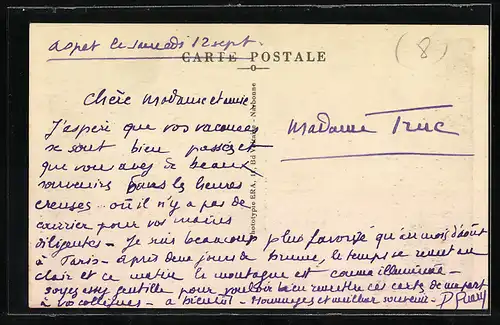 Aspet le samedi 12 sept.
(8)
CARTE POSTALE
Chère Madame et amie
J'espère que vos vacances
se sont bien passées et
que vous avez de beaux
souvenirs dans les heures
creuses où il n'y a pas de
courrier pour vos mains
diligentes - Je suis beaucoup plus favorisé qu'au mois d'août
à Paris - après deux jours de brume, le temps se remet au
clair et ce matin la montagne est comme illuminée -
soyez assez gentille pour vouloir bien remettre ces cartes de ma part
à vos collègues - à bientôt - Hommages et meilleur souvenir -
Phototypie ERA, Bd - Narbonne
Madame Truc